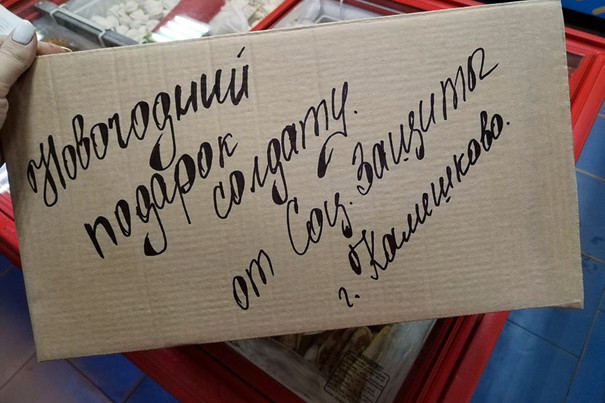 Новогодний
подарок
солдату.
от Соц. Защиты
г. Камешково.